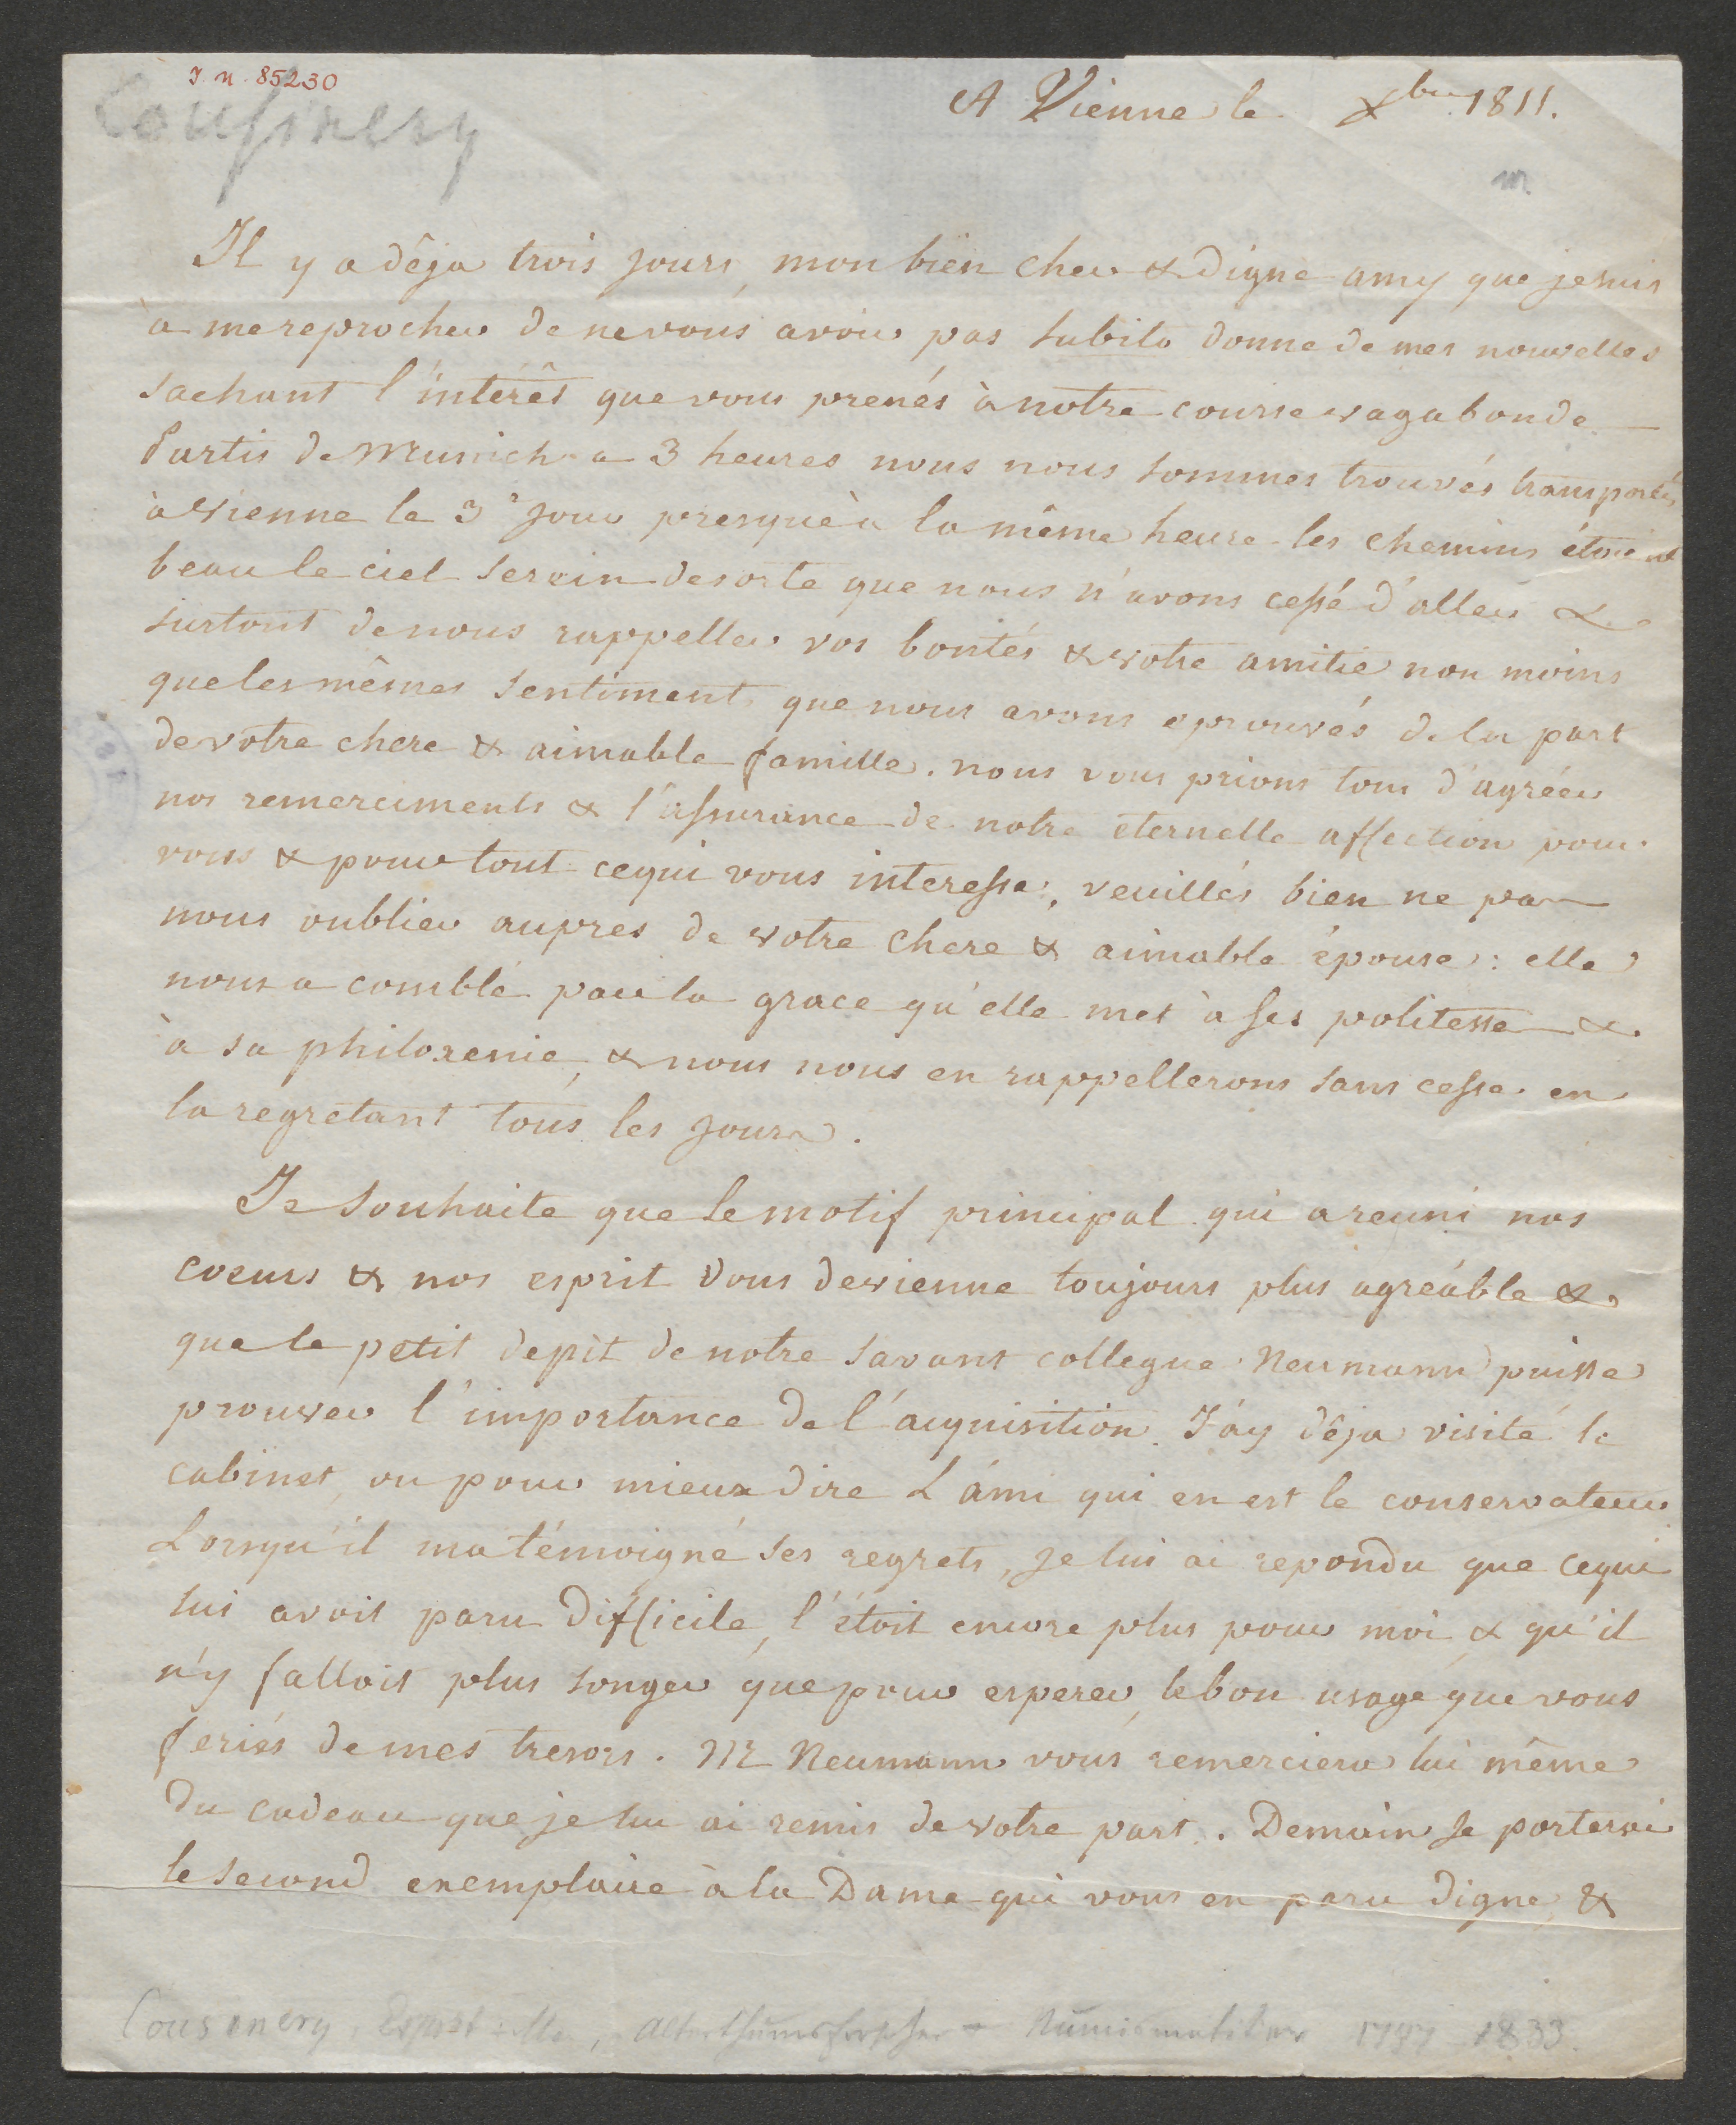 J. N. 85230
Cousinery
A Vienne le Xbre 1811.
Il y a dêja trois jours, mon bien cher & digne amy que je suis
a me reprocher de ne vous avoir pas subito donné de mes nouvelles
sachant l'intérêt que vous prenés à notre course vagabonde
Partis de Munich a 3 heures nous nous sommes trouvés transportés
à Vienne le 3e jour presque à la même heure. les chemins étoient
beau le ciel serein de sorte que nous n'avons cessé d'aller &
surtout de nous rappeller vos bontés & votre amitié non moins
que les mêmes sentiment que nous avons eprouvés de la part
de votre chere & aimable famille. nous vous prions tous d'agréer
nos remerciments & l'assurance de notre eternelle affection pour
vous & pour tout ce qui vous interesse, veuillés bien ne pas
nous oublier aupres de votre chere & aimable épouse: elle
nous a comblé par la grace qu'elle met à ses politesse &
à sa philoxenie, & nous nous en rappellerons sans cesse en
la regretant tous les jours.
Je souhaite que le motif principal qui a reuni nos
coeurs & nos esprit vous devienne toujours plus agréable &
que le petit depit de notre savant collegue Neumann puisse
prouver l'importance de l'acquisition. J'ay dêja visité le
cabinet, ou pour mieux dire L'ami qui en est le conservateur
Lorsqu'il m'a témoigné ses regrets, je lui ai repondu que ce qui
lui avoit paru difficile, l'étoit encore plus pour moi & qu'il
n'y falloit plus songer que pour esperer, le bon usage que vous
feriés de mes tresors. Mr Neumann vous remerciera lui même
du cadeau que je lui ai remis de votre part. Demain je porterai
le second exemplaire à la Dame qui vous en paru digne, &
Cousinery, Alterthumsforscher Numismatiker 1747 1833.